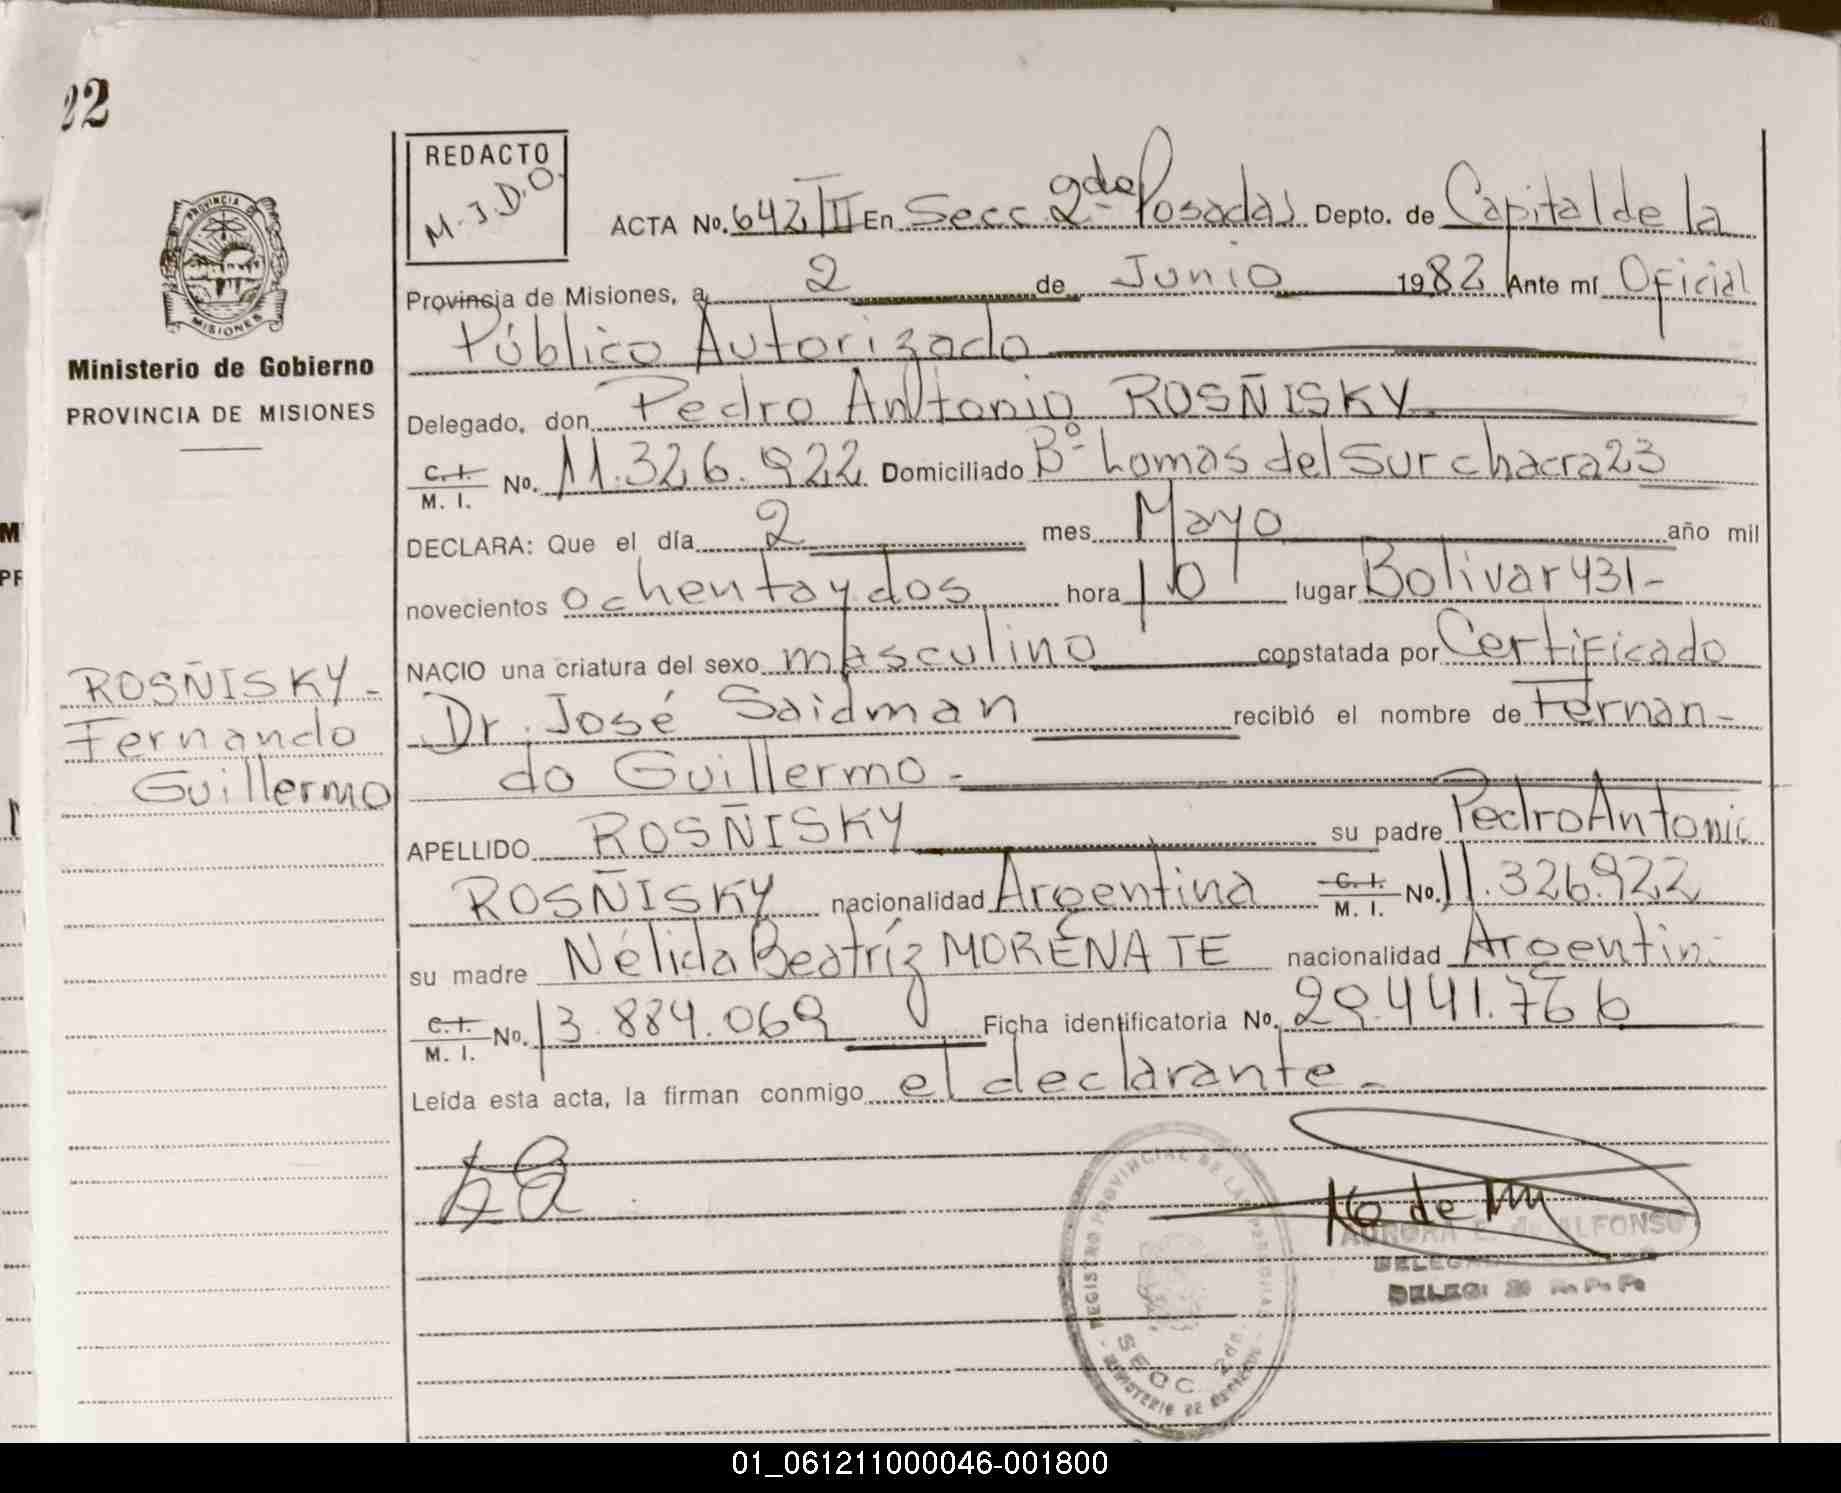 22
REDACTO
M.J.D.O.
PROVINCIA DE
MISIONES
Ministerio de Gobierno
PROVINCIA DE MISIONES
ACTA No. 642/II En Secc. 2da Posadas Depto. de Capital de la
Provincia de Misiones, a 2 de Junio 1982 Ante mí Oficial
Público Autorizado
Delegado, don Pedro Antonio ROSÑISKY
C.I. M. I. No. 11.326.922 Domiciliado Bº Lomas del Sur chacra 23
DECLARA: Que el día 2 mes Mayo año mil
novecientos ochenta y dos hora 10 lugar Bolivar 431-
NACIO una criatura del sexo masculino constatada por Certificado
Dr. José Saidman recibió el nombre de Fernan-
do Guillermo-
APELLIDO ROSÑISKY su padre Pedro Antonio
ROSÑISKY nacionalidad Argentina C.I. M. I. No. 11.326.922
su madre Nélida Beatríz MORENATE nacionalidad Argentin
C.I. M. I. No. 13.884.069 Ficha identificatoria No. 29.441.766
Leída esta acta, la firman conmigo el declarante-
ROSÑISKY-
Fernando
Guillermo
REGISTRO PROVINCIAL DE LAS PERSONAS
SECC. 2da.
AURORA E. de ALFONSO
01_061211000046-001800